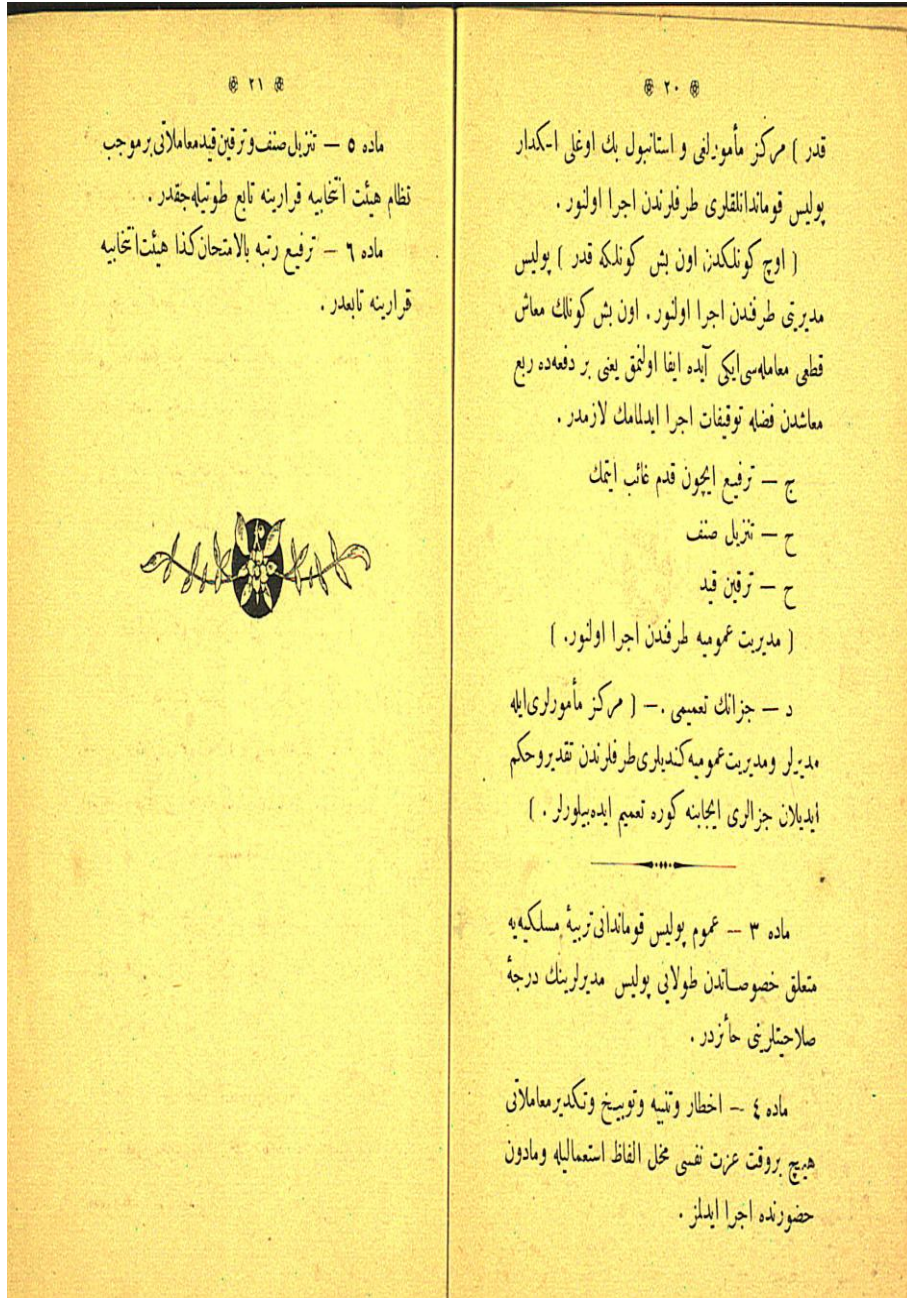 ٢٠
قدر ) مركز مأمورلغى و استانبول بك اوغلى اسكدار
پوليس قومانداتلقلرى طرفلرندن اجرا اولنور .
( اوچ كونلكدن اون بش كونلكه قدر ) پوليس
مديريتى طرفندن اجرا اولنور . اون بش كونلك معاش
قطعى معامله‌سى ايكى آيده ايفا اولنمق يعنى بر دفعه‌ده ربع
معاشدن فضله توقيفات اجرا ايدلمامك لازمدر .
ج — ترفيع ايچون قدم غائب ايتمك
ح — تنزيل صنف
ح — ترقين قيد
( مديريت عموميه طرفندن اجرا اولنور. )
د — جزانك تعميمى .— ( مركز مأمورلرى ايله
مديرلر ومديريت عموميه كنديلرى طرفلرندن تقدير وحكم
ايديلان جزالرى ايجابنه كوره تعميم ايده‌بيلورلر . )
ماده ٣ — عموم پوليس قوماندانى تربيۀ مسلكيه‌يه
متعلق خصوصاتدن طولايى پوليس مديرلرينك درجۀ
صلاحيتلرينى حائزدر .
ماده ٤ — اخطار وتنبيه وتوبيخ وتكدير معاملاتى
هيچ بروقت عزت نفسى مخل الفاظ استعماليله ومادون
حضورنده اجرا ايدلمز .
٢١
ماده ٥ — تنزيل صنف وترقين قيد معاملاتى برموجب
نظام هيئت انتخابيه قرارينه تابع طوتيله‌جقدر .
ماده ٦ — ترفيع رتبه بالامتحان كذا هيئت انتخابيه
قرارينه تابعدر .